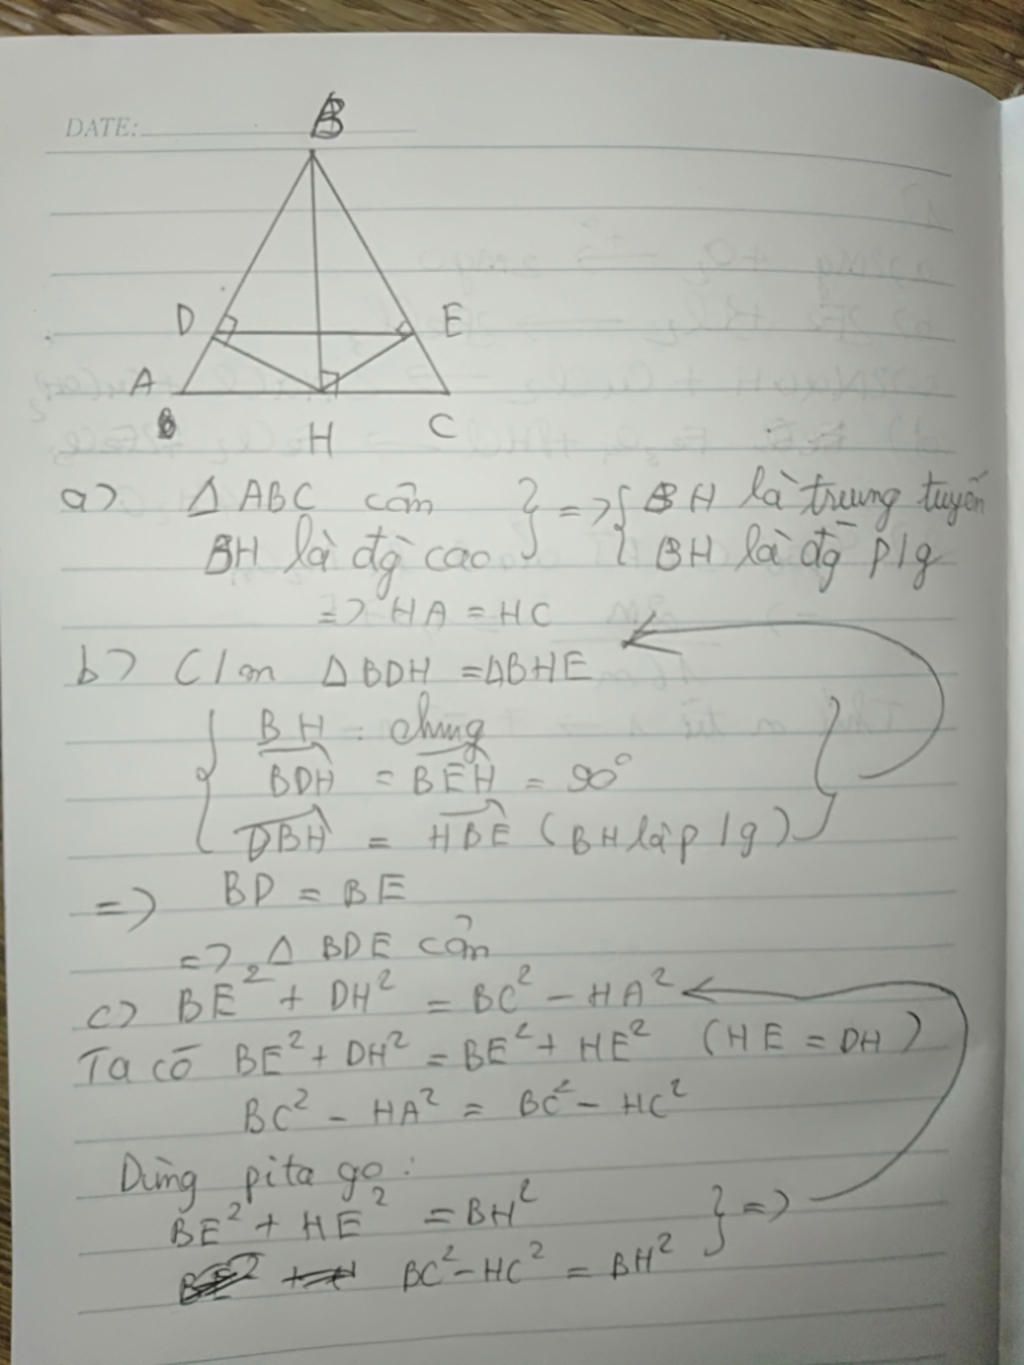 DATE:
B
D
E
A
H
C
a) Δ ABC cân } => { BH là trung tuyến
BH là đg cao } { BH là đg p/g
=> HA = HC
b) C/m Δ BDH = ΔBHE
BH : chung
BDH = BEH = 90°
DBH = HBE (BH là p/g)
=> BD = BE
=> Δ BDE cân
c) BE² + DH² = BC² - HA²
Ta có BE² + DH² = BE² + HE² (HE = DH)
BC² - HA² = BC² - HC²
Dùng pita go:
BE² + HE² = BH² } =>
BC² - HC² = BH²